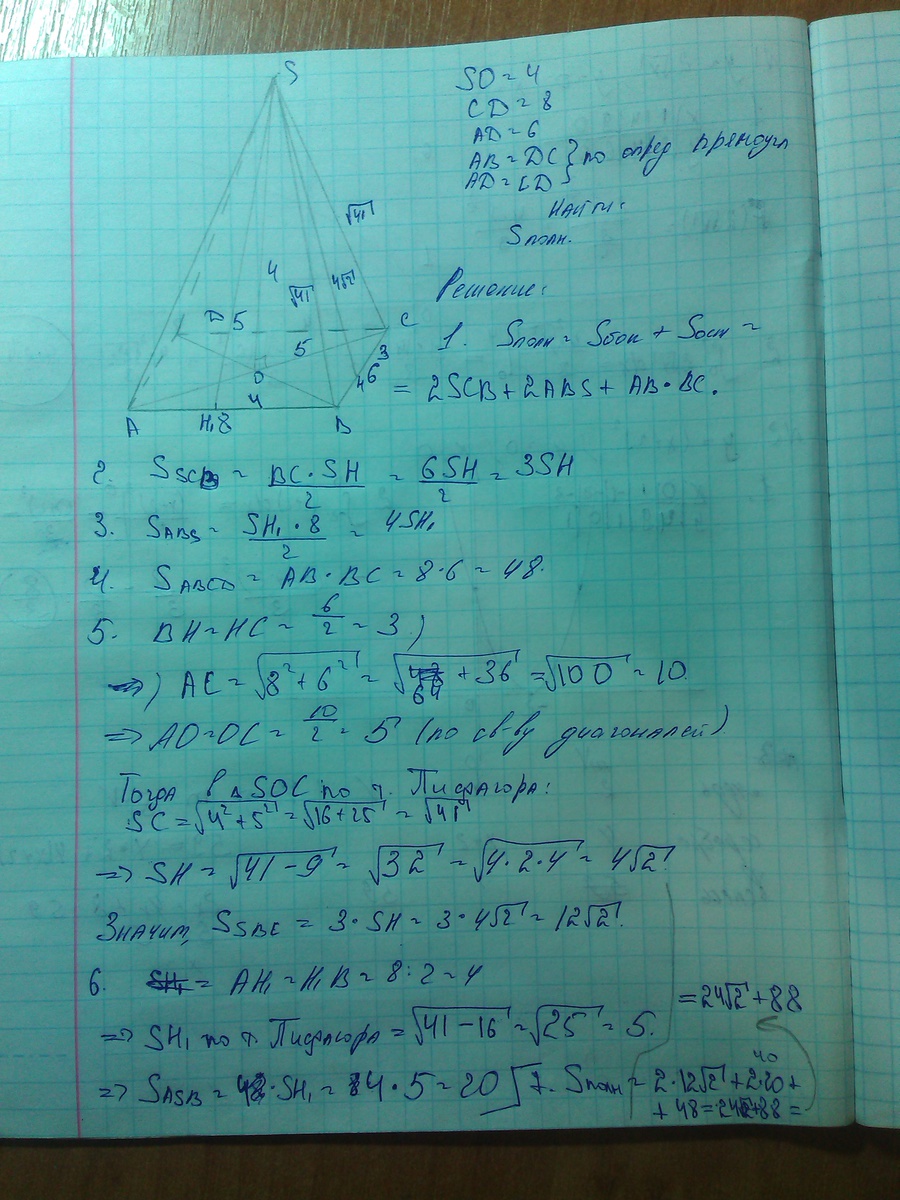 S
SO = 4
CD = 8
AD = 6
AB = DC } по опред прямоугл
AD = CD
Найти:
Sполн.
√41
4
√41
4√2
D
5
C
5
3
O
6
4
4
A
H₁
8
B
Решение:
1. Sполн = Sбок + Sосн =
= 2SCB + 2ABS + AB·BC.
2. SSCB = BC·SH/2 = 6SH/2 = 3SH
3. SABS = SH₁·8/2 = 4SH₁
4. SABCD = AB·BC = 8·6 = 48.
5. BH = HC = 6/2 = 3)
⇒) AC = √8²+6² = √64+36 = √100 = 10
⇒ AO = OC = 10/2 = 5 (по св-ву диагоналей)
Тогда в △SOC по т. Пифагора:
SC = √4²+5² = √16+25 = √41
⇒ SH = √41-9 = √32 = √4·2·4 = 4√2.
Значит, SSBC = 3·SH = 3·4√2 = 12√2.
6. SH₁ = AH₁ = H₁B = 8:2 = 4
⇒ SH₁ по т. Пифагора = √41-16 = √25 = 5.
⇒ SASB = 4·SH₁ = 4·5 = 20
7. Sполн = 2·12√2 + 2·20 +
40
+ 48 = 24√2+88 =
= 24√2 + 88